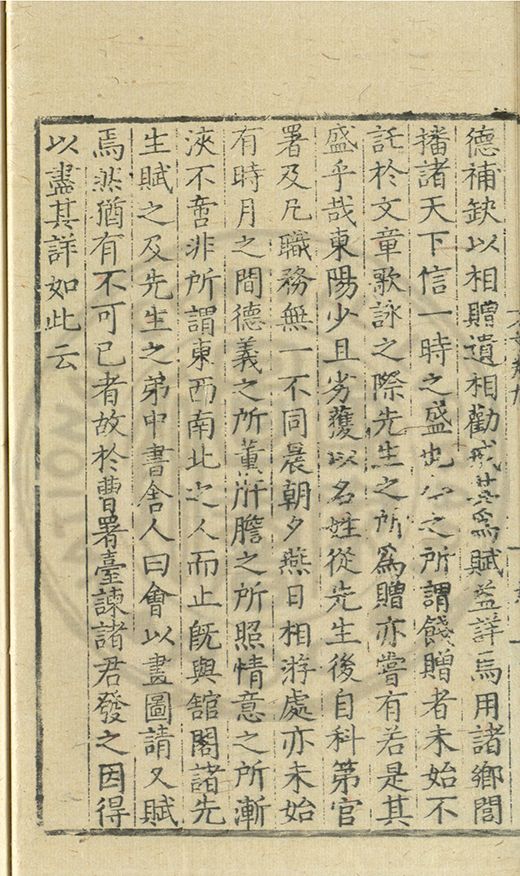 德補缺以相贈遺相勸戒其爲賦益詳焉用諸鄉閭
播諸天下信一時之盛也今之所謂餞贈者未始不
託於文章歌詠之際先生之所爲贈亦嘗有若是其
盛乎哉東陽少且劣獲以名姓從先生後自科第官
署及凡職務無一不同晨朝夕燕日相游處亦未始
有時月之間德義之所薰肝膽之所照情意之所漸
浹不啻非所謂東西南北之人而止旣與舘閣諸先
生賦之及先生之弟中書舍人曰會以畫圖請又賦
焉然猶有不可已者故於曹署臺諫諸君發之因得
以盡其詳如此云